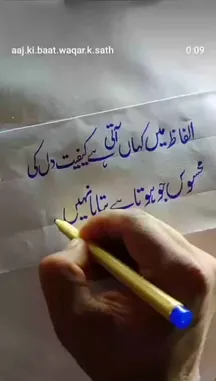 aaj.ki.baat.waqar.k.sath
0:09
الفاظ میں کہاں آتی ہے کیفیت دل کی
محسوس جو ہوتا ہے بتایا نہیں